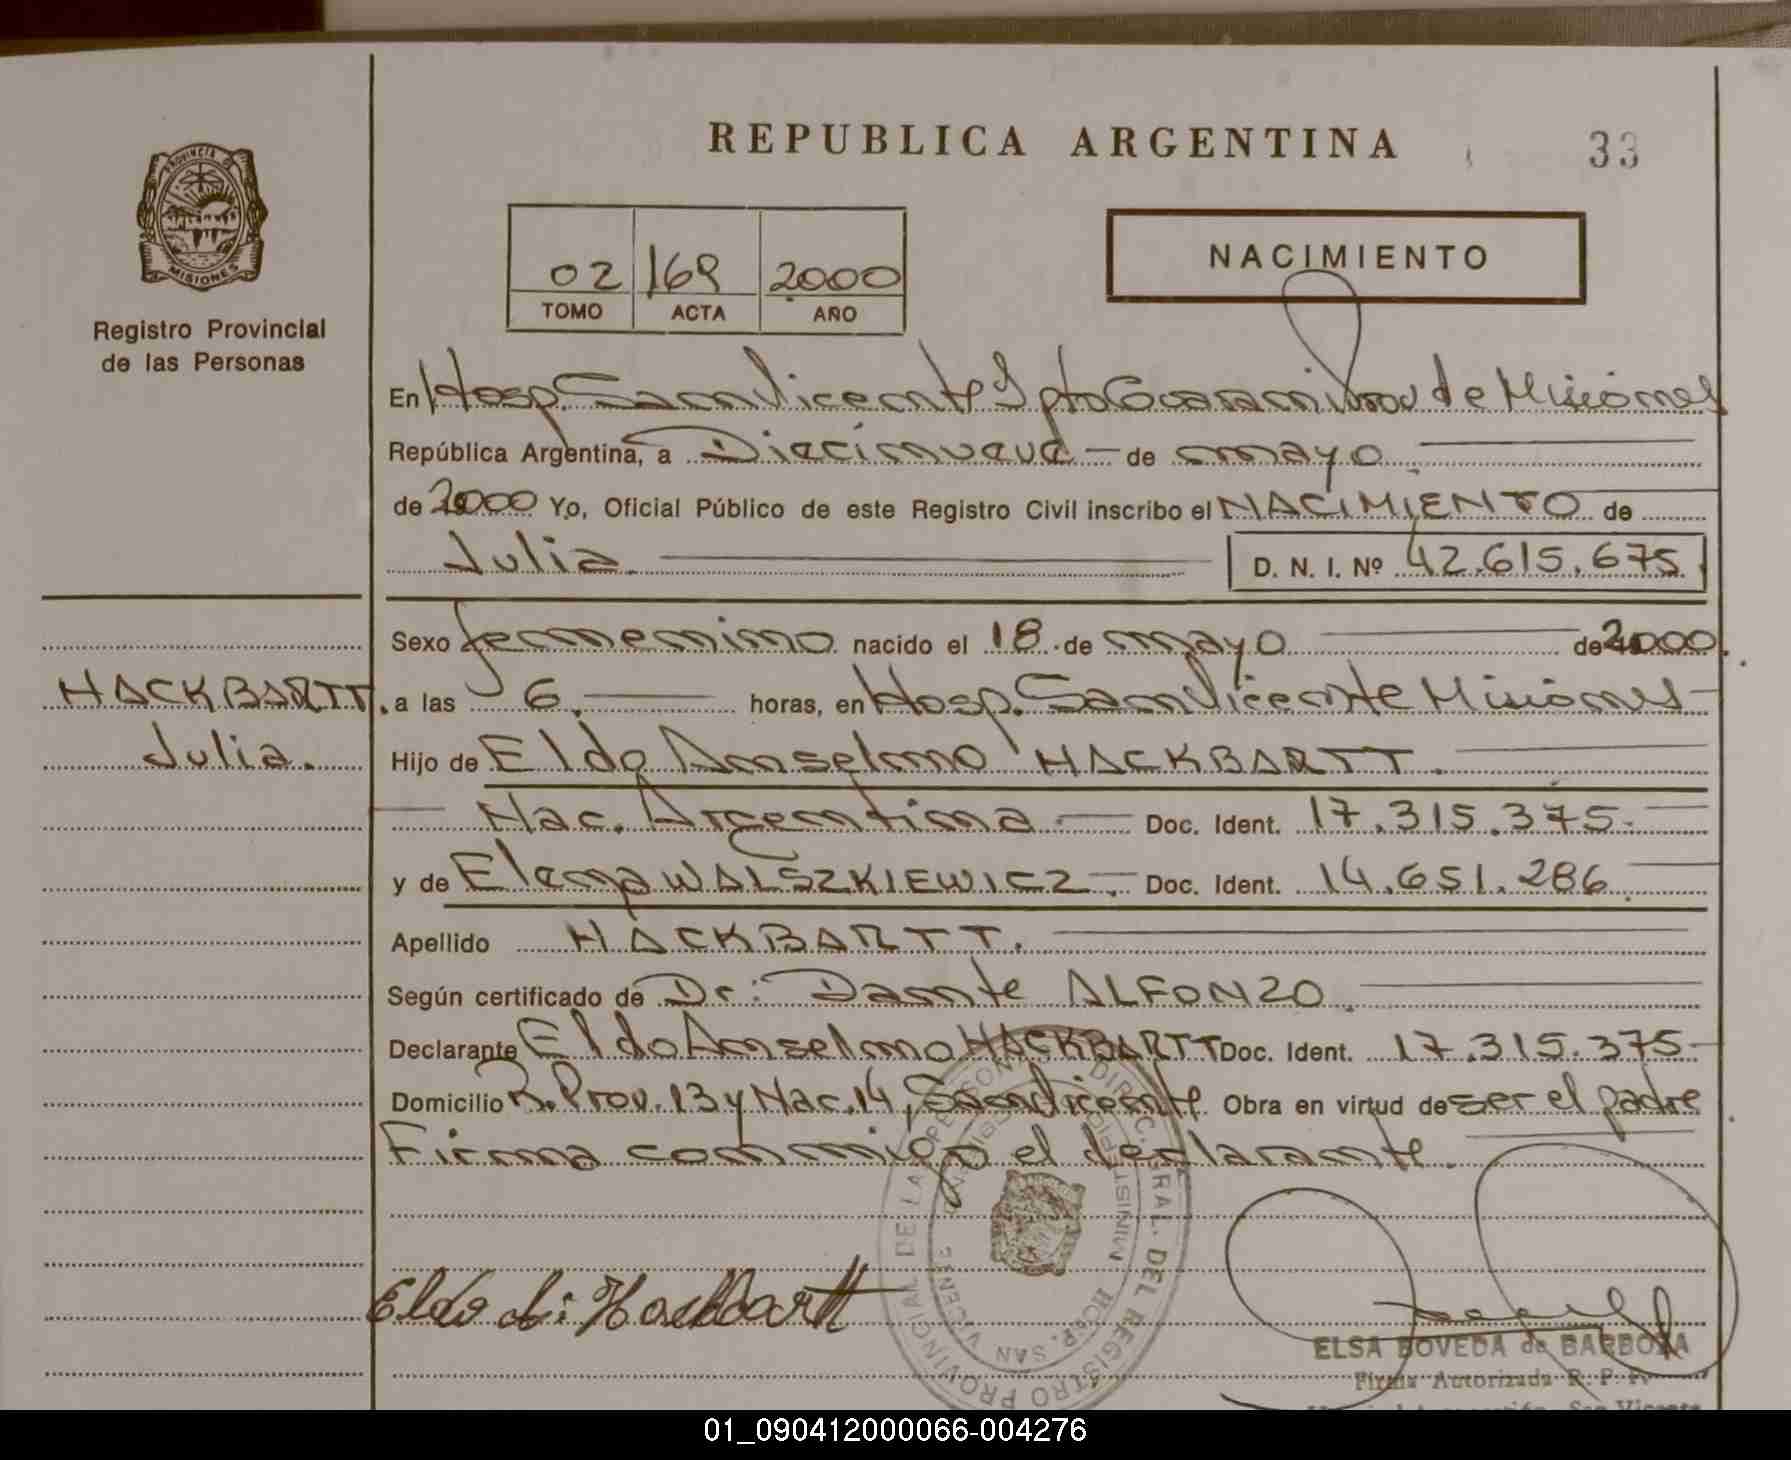 REPUBLICA ARGENTINA
33
PROVINCIA D
MISIONES
Registro Provincial
de las Personas
02 169 2000
TOMO ACTA AÑO
NACIMIENTO
En Hosp. San Vicente Dpto Guarani Prov de Misiones
República Argentina, a Diecinueve — de mayo
de 2000 Yo, Oficial Público de este Registro Civil inscribo el NACIMIENTO de
Julia. D. N. I. Nº 42.615.675
Sexo femenino nacido el 18 de mayo de 2000.
HACKBARTT.
Julia.
a las 6. horas, en Hosp. San Vicente Misiones
Hijo de Eldo Anselmo HACKBARTT.
Nac. Argentina — Doc. Ident. 17.315.375.
y de Elena WALSZKIEWICZ. Doc. Ident. 14.651.286.
Apellido HACKBARTT.
Según certificado de Dr: Dante ALFONZO.
Declarante Eldo Anselmo HACKBARTT Doc. Ident. 17.315.375
Domicilio R. Prov. 13 y Nac. 14, San Vicente Obra en virtud de ser el padre
Firma conmigo el declarante.
Eldo A: Hackbartt
DIREC. GRAL. DEL REGISTRO PROVINCIAL DE LA PERSON
SAN VICENTE
ELSA BOVEDA de BARBOZA
Firma Autorizada R. P. P.
San Vicente
01_090412000066-004276